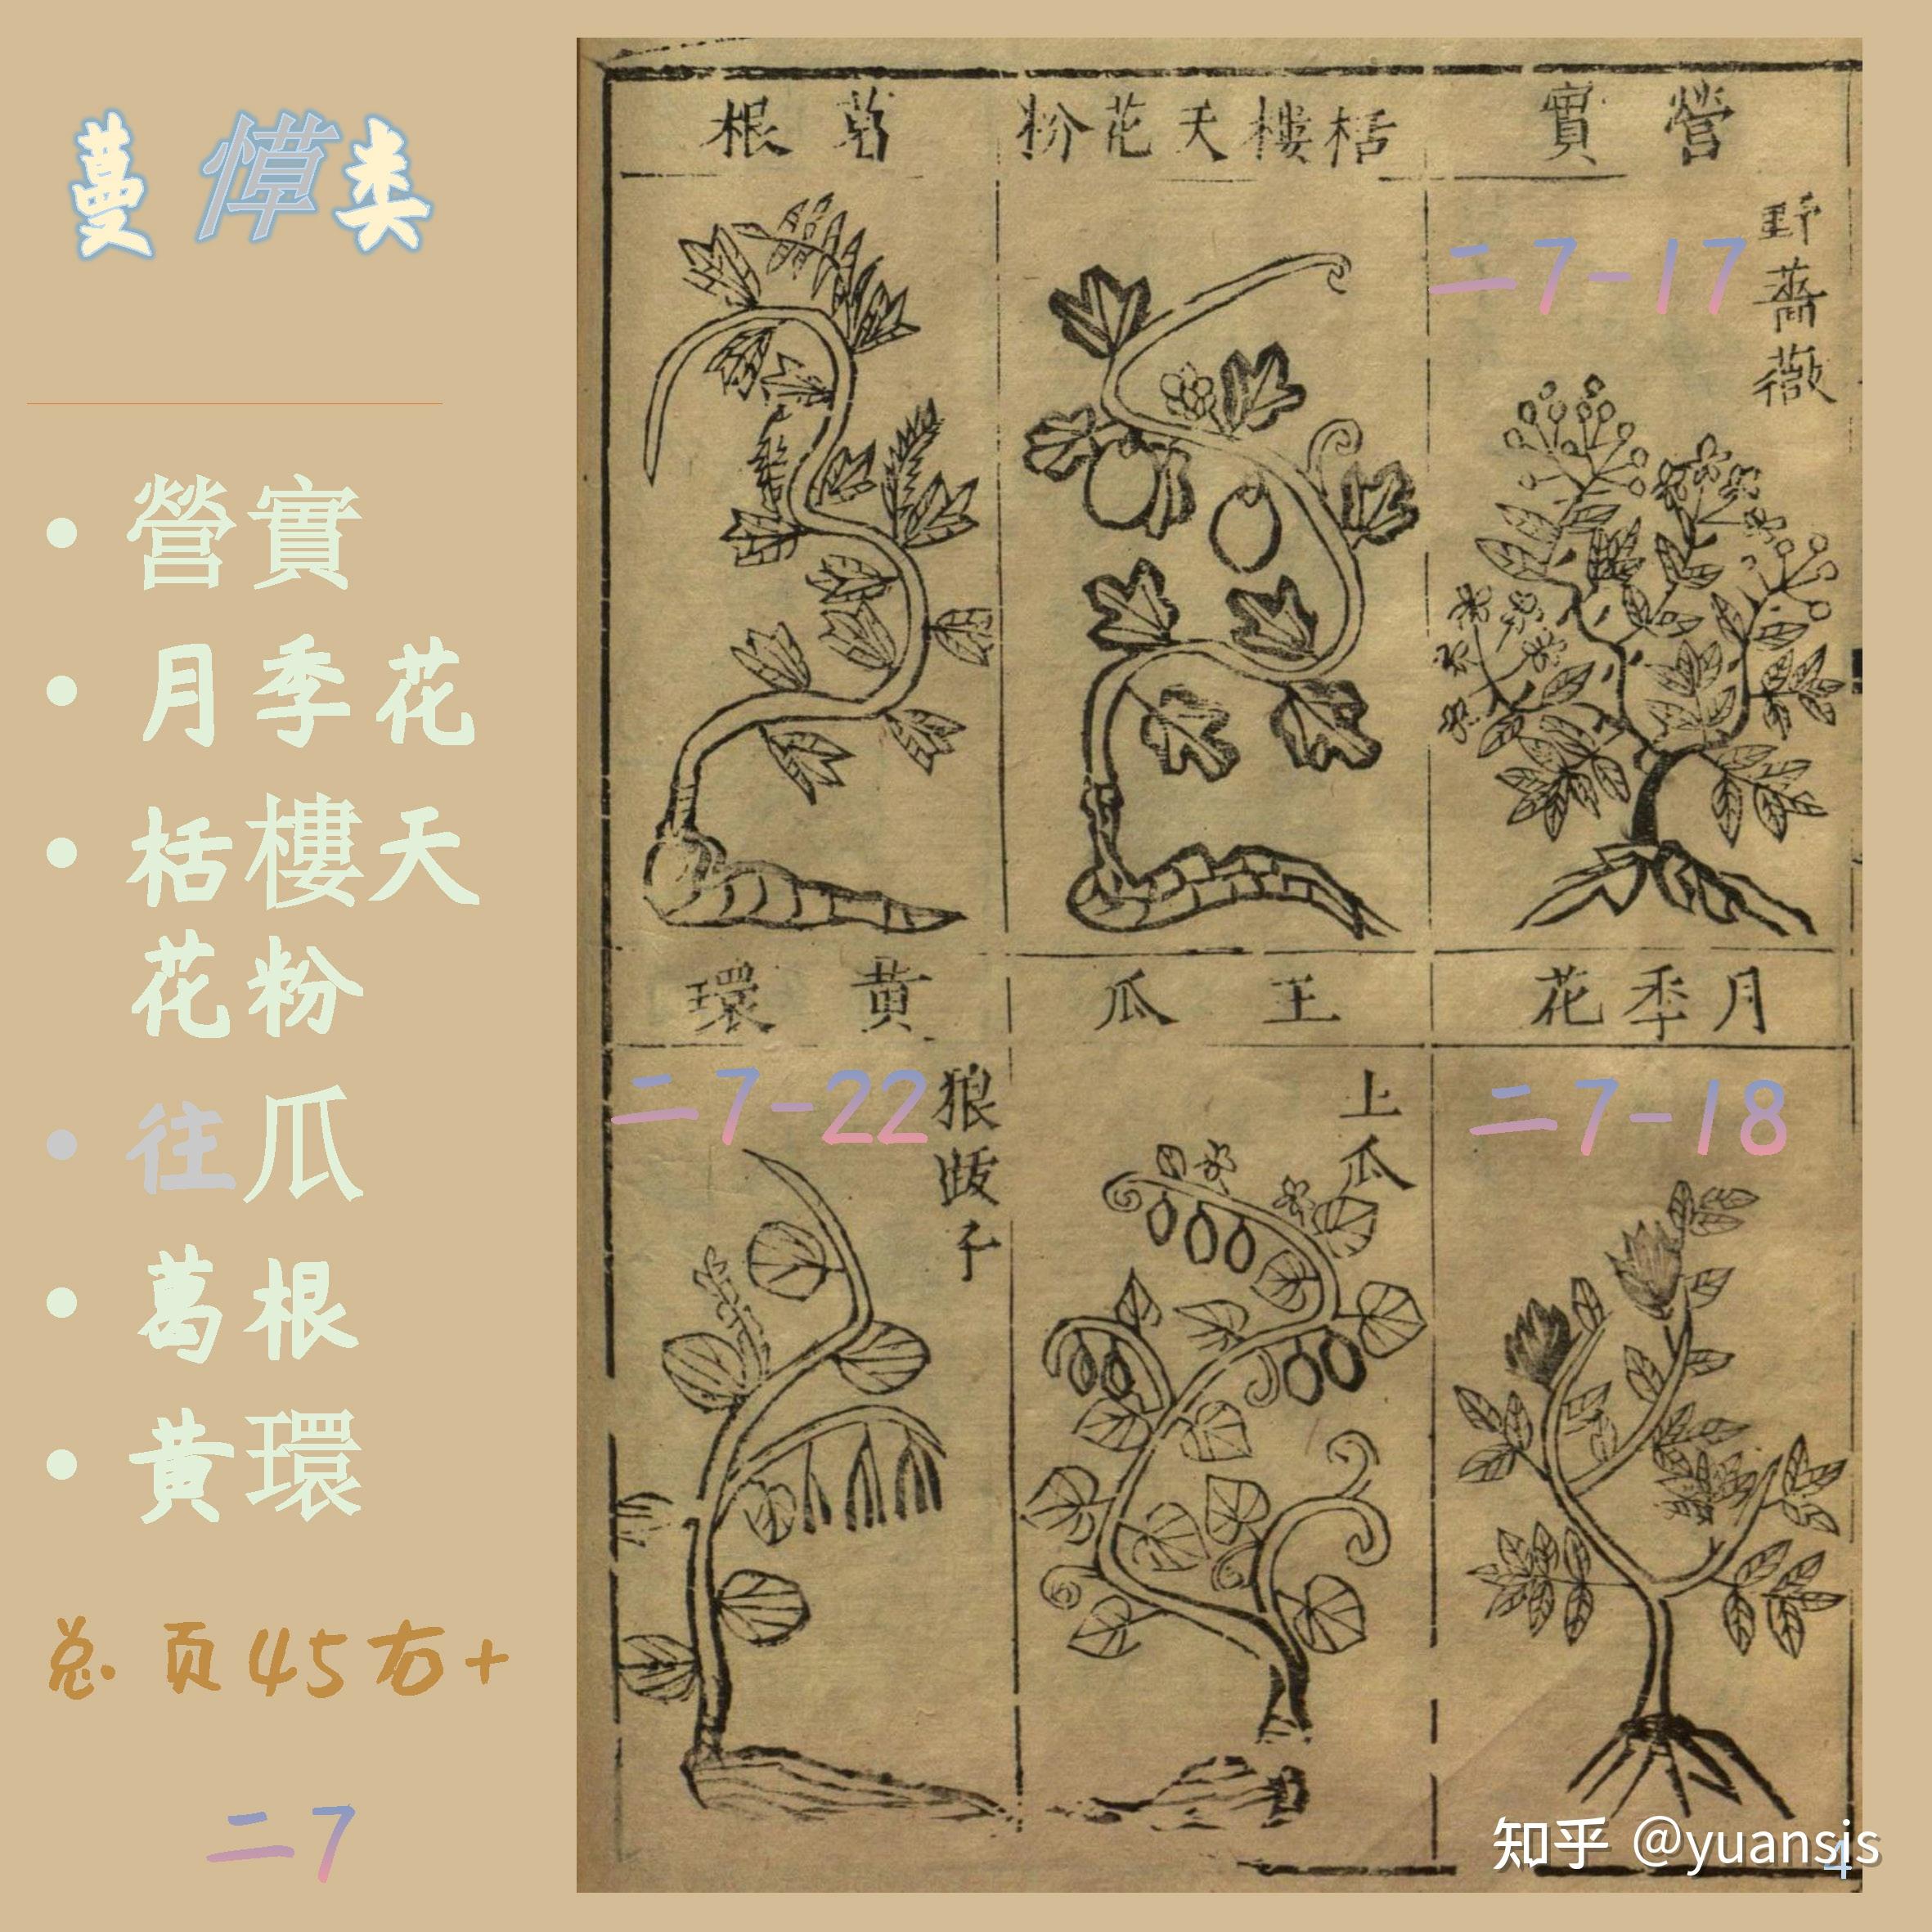 蔓 愅类
營實
月季花
栝樓天
花粉
往瓜
葛根
黄環
总.页45右+
二7
根 葛
粉花天樓栝
實 營
野薔薇
二7-17
環 黄
瓜 王
花季月
二7-22
狼跋子
土瓜
二7-18
知乎 @yuansis
4